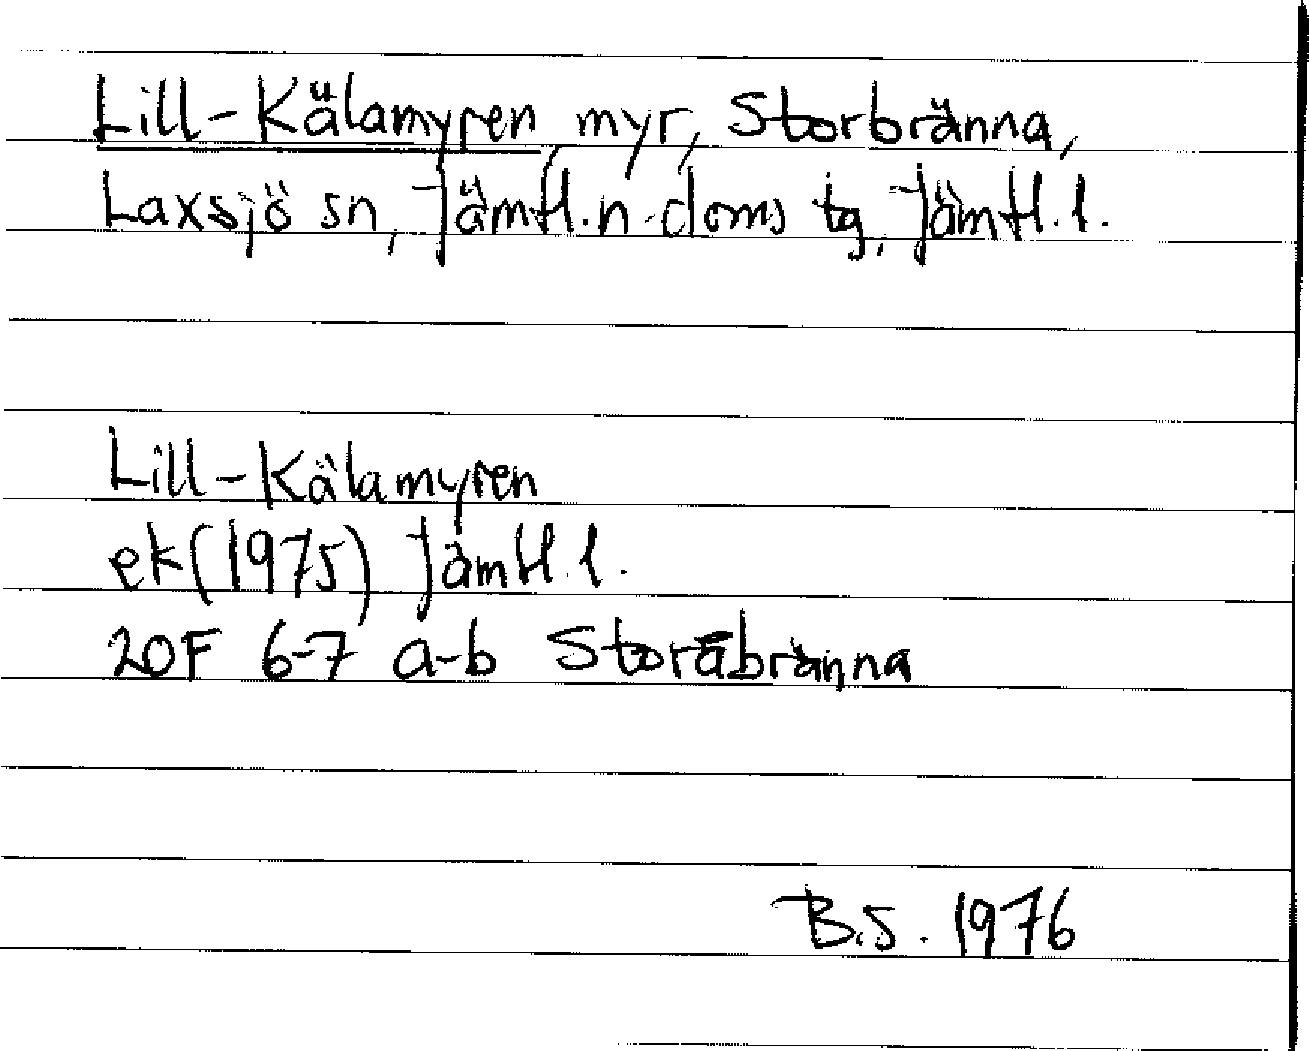 Lill-Kälamyren myr, Storbränna,
Laxsjö sn, Jämtl. n. doms tg, Jämtl. l.
Lill-Kälamyren
ek (1975) Jämtl. l.
20F 6-7 a-b Storåbränna
B.S. 1976